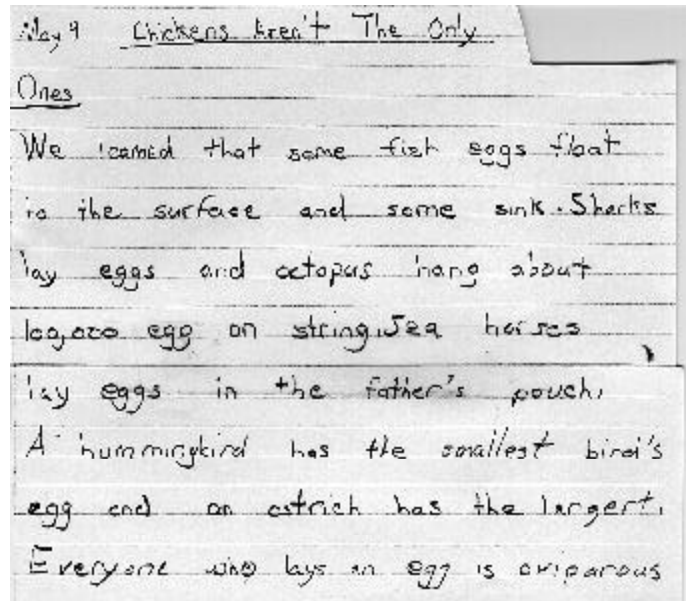 May 9 Chickens Aren't The Only
Ones
We learned that some fish eggs float
to the surface and some sink. Sharks
lay eggs and octopus hang about
100,000 egg on string. Sea horses
lay eggs in the father's pouch.
A hummingbird has the smallest bird's
egg and an ostrich has the largest.
Everyone who lays an egg is oviparous